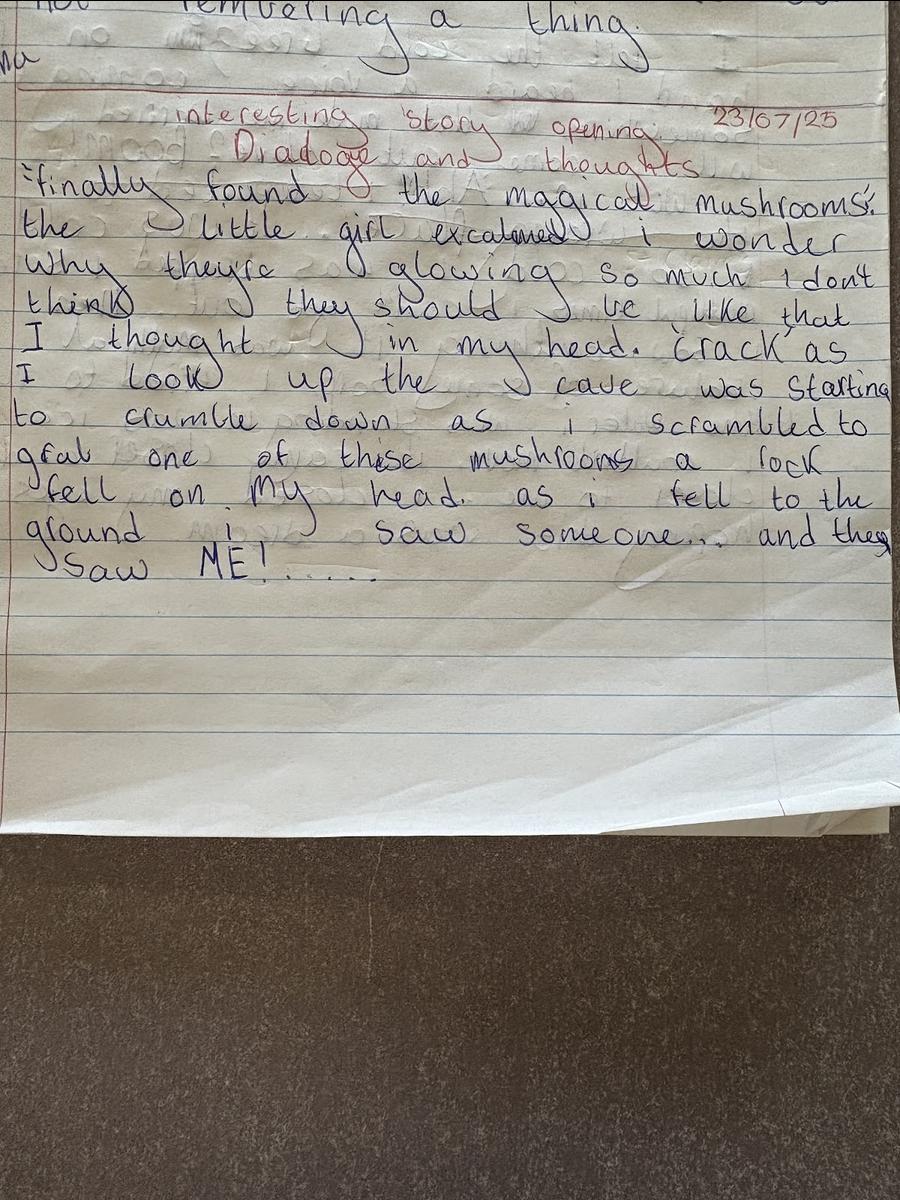 not rembering a thing.
interesting story opening 23/07/25
Diadoge and thoughts
"finally found the magical mushrooms".
the little girl excalamed i wonder
why they're glowing so much I don't
think they should be like that
I thought in my head. "crack" as
I look up the cave was starting
to crumble down as i scrambled to
grab one of these mushrooms a rock
fell on my head. as i fell to the
ground i saw someone... and they
saw ME!......